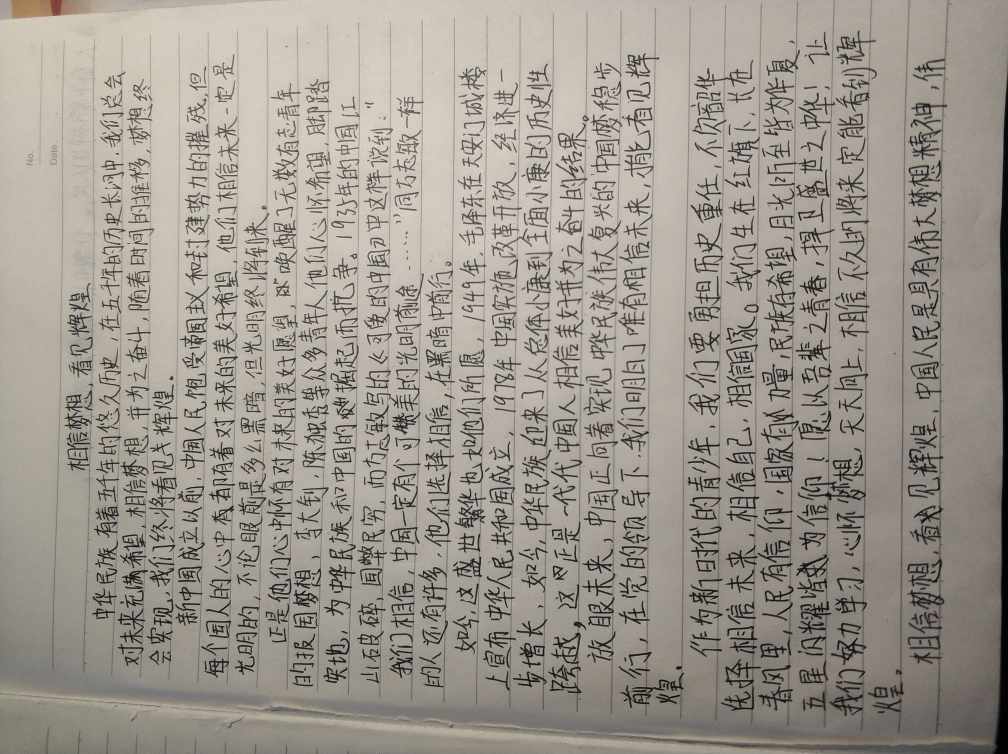 No.
Date
相信梦想，看见辉煌
中华民族有着五千年的悠久历史，在五千年的历史长河中，我们总会
对未来充满希望，相信梦想，并为之奋斗，随着时间的推移，梦想终
会实现，我们终将看见辉煌。
新中国成立以前，中国人民饱受帝国主义和封建势力的摧残，但
每个国人的心中都有着对未来的美好希望，他们相信未来一定是
光明的，不论眼前是多么黑暗，但光明终将到来。
正是他们心中怀有对未来的美好愿望，唤醒了无数有志青年
的报国梦想，李大钊，陈独秀等众多青年人他们心怀希望，脚踏
实地，为中华民族和中国的崛起而抗争。1935年的中国江
山破碎，国弊民穷，而方志敏写的《可爱的中国》中这样说到："
我们相信，中国一定有个可赞美的光明前途……"同方志敏一样
的人还有许多，他们选择相信，在黑暗中前行。
如今，这盛世繁华也如他们所愿，1949年，毛泽东在天安门城楼
上宣布中华人民共和国成立，1978年中国实施改革开放，经济进一
步增长，如今，中华民族迎来了从总体小康到全面小康的历史性
跨越，这正是一代代中国人相信美好并为之奋斗的结果。
放眼未来，中国正向着实现中华民族伟大复兴的中国梦稳步
前行，在党的领导下，我们明白了唯有相信未来，才能看见辉
煌。
作为新时代的青少年，我们要肩担历史重任，不负韶华
选择相信未来，相信自己，相信国家。我们生在红旗下，长在
春风里，人民有信仰，国家有力量，民族有希望，目光所至皆为华夏，
五星闪耀皆为信仰！愿以吾辈之青春，捍卫盛世之中华！让
我们好好学习，心怀梦想，天天向上，相信不久的将来定能看到辉
煌。
相信梦想，看见辉煌，中国人民是具有伟大梦想精神，伟